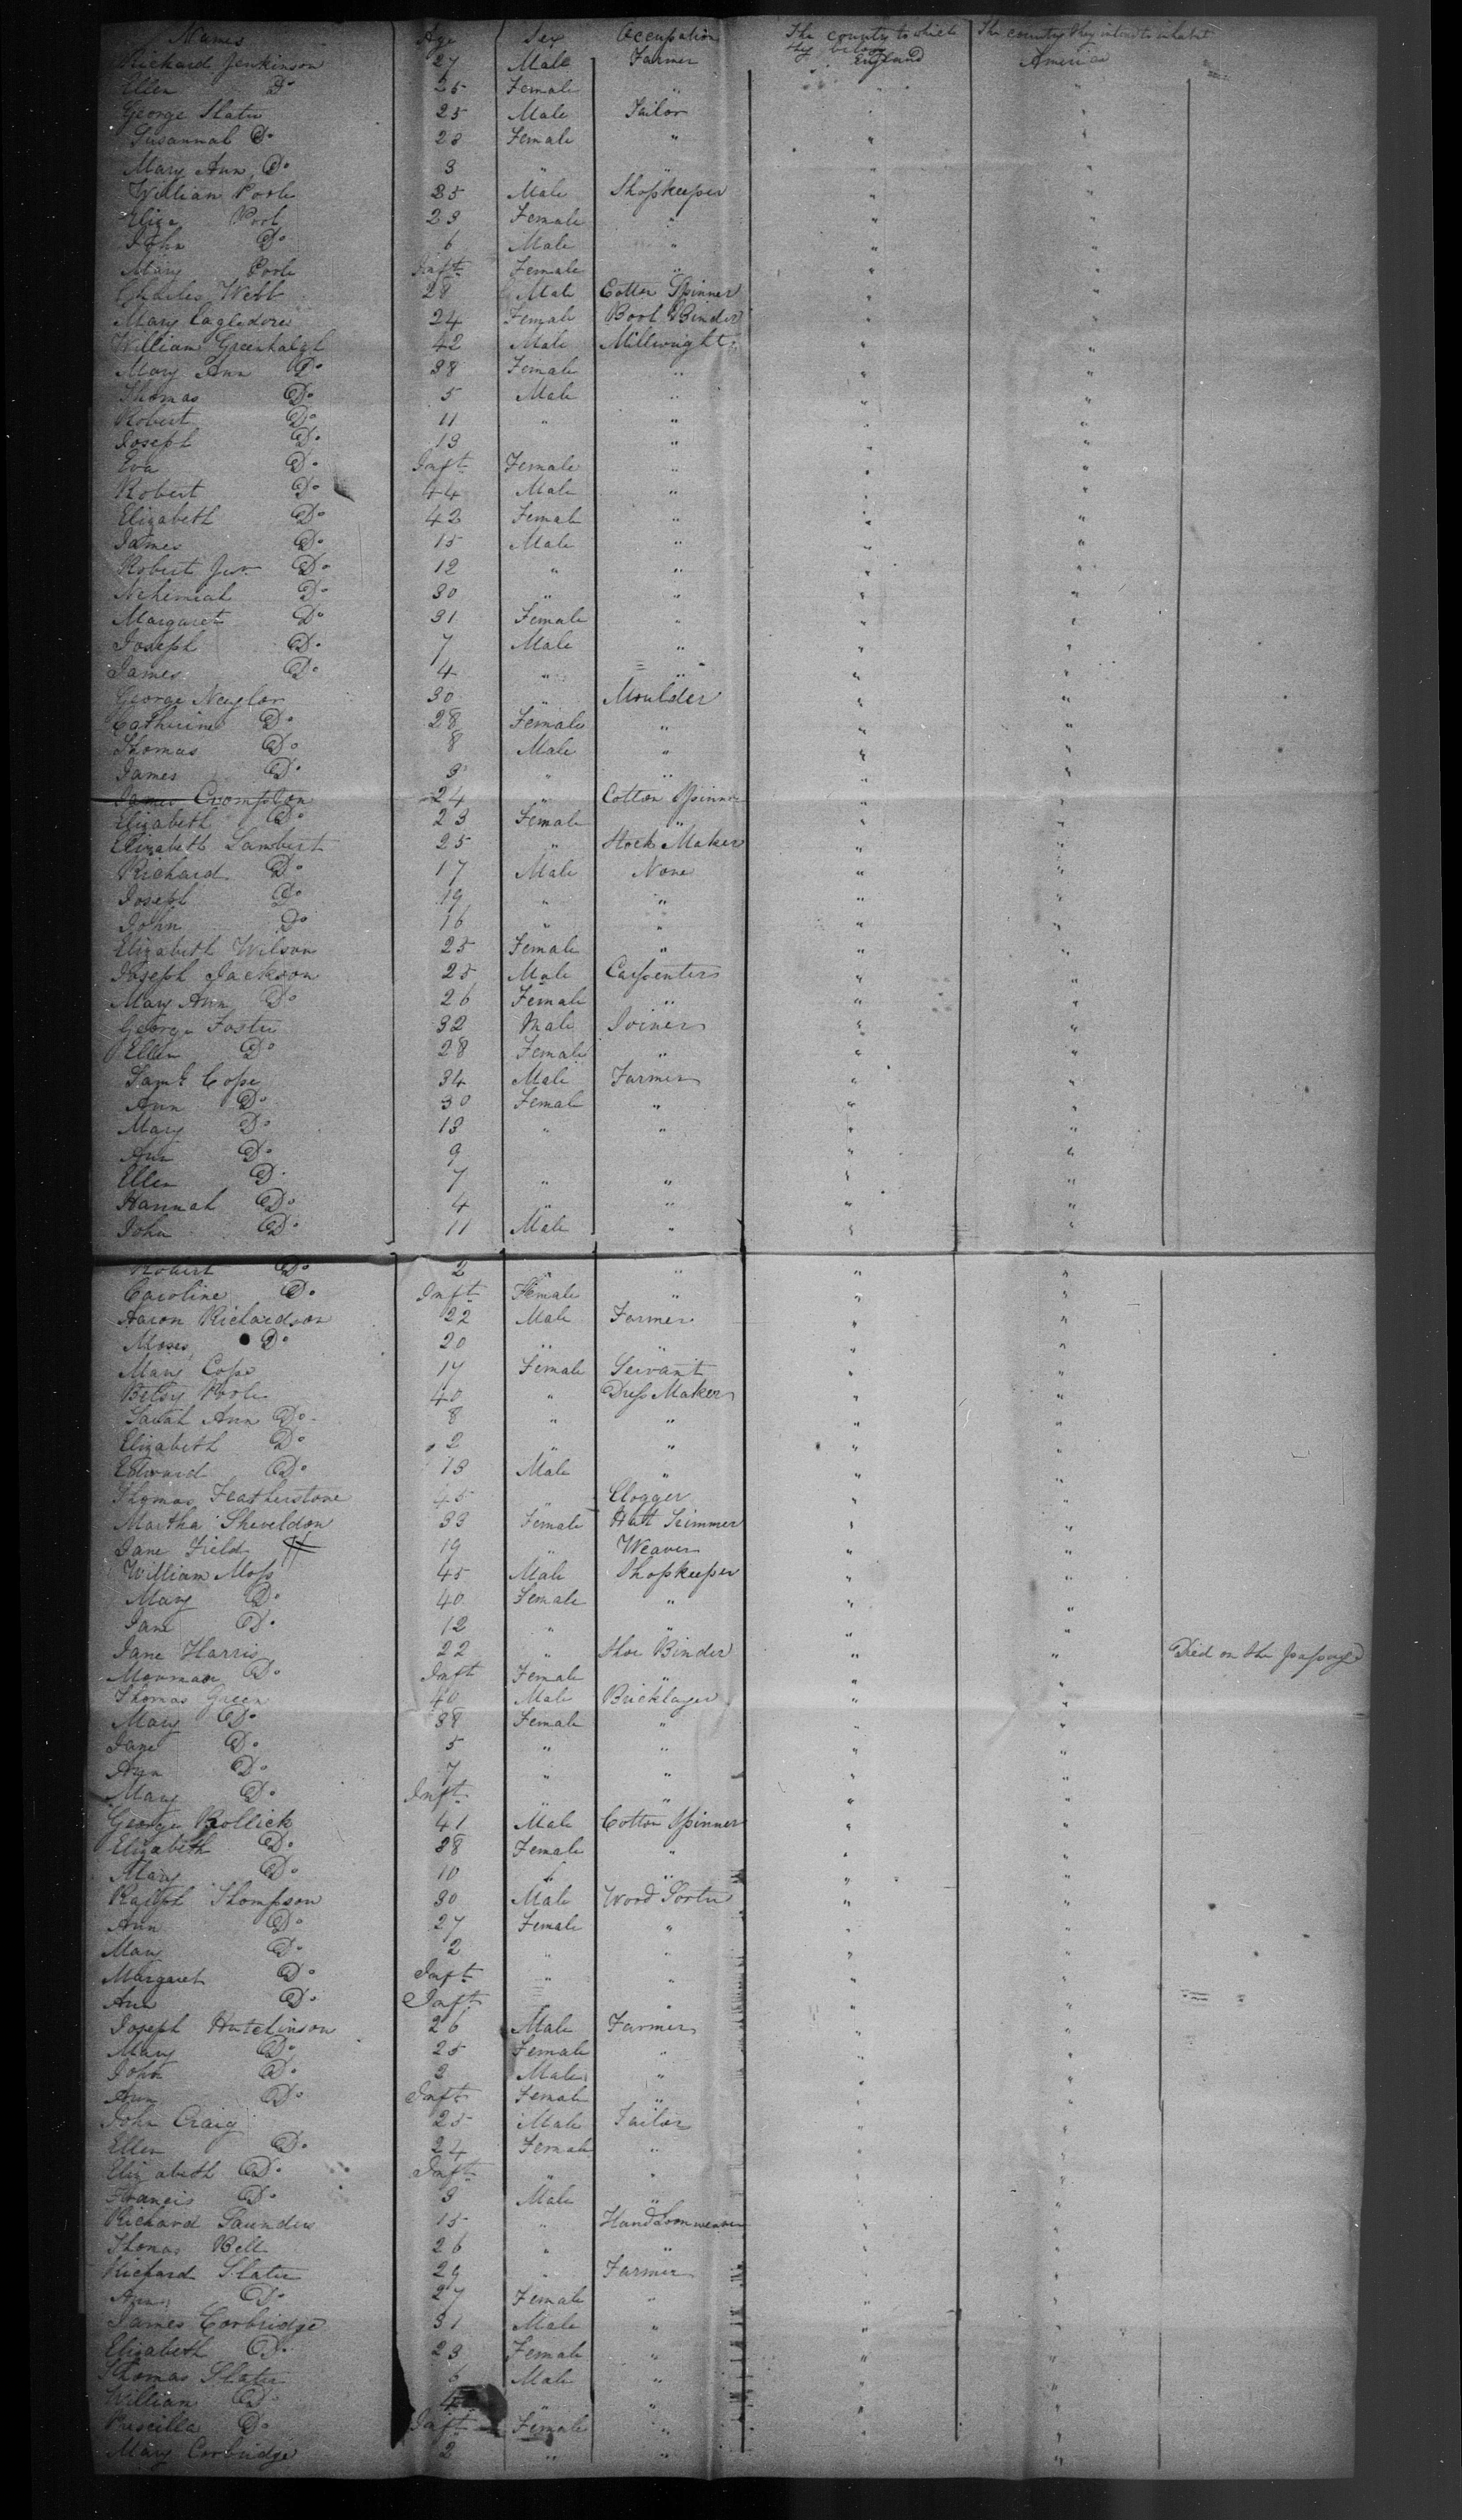 Names Age Sex Occupation The country to which they belong The country they intend to inhabit
Richard Jenkinson 27 Male Farmer England America
Ellen Do 25 Female " " "
George Slater 25 Male Tailor " "
Susannah Do 23 Female " " "
Mary Ann Do 3 " " " "
William Poole 25 Male Shopkeeper " "
Eliza Pool 23 Female " " "
John Do 6 Male " " "
Mary Poole Inft Female " " "
Charles Webb 28 Male Cotton Spinner " "
Mary 24 Female Boot Binder " "
William Greenhalgh 42 Male Millwright " "
Mary Ann Do 38 Female " " "
Thomas Do 5 Male " " "
Robert Do 11 " " " "
Joseph Do 13 " " "
Eva Do Inft Female " " "
Robert Do 44 Male " " "
Elizabeth Do 42 Female " " "
James Do 15 Male " " "
Robert Junr Do 12 " " " "
Nehemiah Do 30 " " " "
Margaret Do 31 Female " " "
Joseph Do 7 Male " " "
James Do 4 " " " "
George Naylor 30 " Moulder " "
Catherine Do 28 Female " " "
Thomas Do 8 Male " " "
James Do 3 " " " "
James Crompton 24 " Cotton Spinner " "
Elizabeth Do 23 Female " " "
Elizabeth Lambert 25 " Stock Maker " "
Richard Do 17 Male None " "
Joseph Do 19 " " " "
John Do 16 " " " "
Elizabeth Wilson 25 Female " " "
Joseph Jackson 25 Male Carpenter " "
Mary Ann Do 26 Female " " "
George Foster 32 Male Joiner " "
Ellen Do 28 Female " " "
Saml Cope 34 Male Farmer " "
Ann Do 30 Female " " "
Mary Do 13 " " " "
Ann Do 9 " "
Ellen Do 7 " " " "
Hannah Do 4 " " " "
John Do 11 Male " " "
Robert Do 2 " " " "
Caroline Do Inft Female " " "
Aaron Richardson 22 Male Farmer " "
Moses Do 20 " " " "
Mary Cope 17 Female Servant " "
Betsy Poole 40 " Dress Maker " "
Sarah Ann Do 8 " " " "
Elizabeth Do 2 " " " "
Edward Do 13 Male " " "
Thomas Featherstone 45 " Clogger " "
Martha Sheveldon 33 Female Hatt Trimmer " "
Jane Field 19 " Weaver " "
William Moss 45 Male Shopkeeper " "
Mary Do 40 Female " " "
Jane Do 12 " " " "
Jane Harris 22 " Shoe Binder " " Died on the passage
Do Inft Female " " "
Thomas Green 40 Male Bricklayer " "
Mary Do 38 Female " " "
Jane Do 5 " " " "
Ann Do 7 " " " "
Mary Do Inft " " " "
George Rollick 41 Male Cotton Spinner " "
Elizabeth Do 38 Female " " "
Mary Do 10 " " " "
Ralph Thompson 30 Male " "
Ann Do 27 Female " " "
Mary Do 2 " " " "
Margaret Do Inft " " " "
Ann Do Inft " " "
Joseph Hutchinson 26 Male Farmer " "
Mary Do 25 Female " " "
John Do 2 Male " " "
Ann Do Inft Female " " "
John Craig 25 Male Tailor " "
Ellen Do 24 Female " " "
Elizabeth Do Inft " " " "
Francis Do 3 Male " " "
Richard Saunders 15 " Hand Loom weaver " "
Thomas Bell 26 " " " "
Richard Slater 29 " Farmer " "
Ann Do 27 Female " " "
James Corbridge 31 Male " " "
Elizabeth Do 23 Female " " "
Thomas Slater 6 Male " " "
William Do 4 " " " "
Priscilla Do Inft Female " " "
Mary Corbridge 2 " " " "